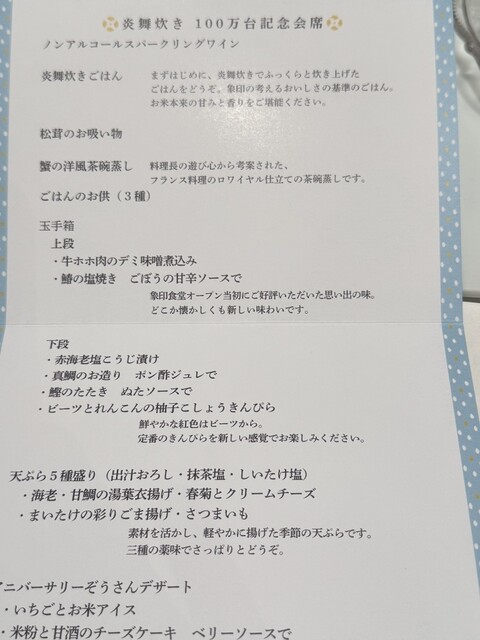 炎舞炊き 100万台記念会席
ノンアルコールスパークリングワイン
炎舞炊きごはん まずはじめに、炎舞炊きでふっくらと炊き上げた
ごはんをどうぞ。象印の考えるおいしさの基準のごはん。
お米本来の甘みと香りをご堪能ください。
松茸のお吸い物
蟹の洋風茶碗蒸し 料理長の遊び心から考案された、
フランス料理のロワイヤル仕立ての茶碗蒸しです。
ごはんのお供(3種)
玉手箱
上段
・牛ホホ肉のデミ味噌煮込み
・鰆の塩焼き ごぼうの甘辛ソースで
象印食堂オープン当初にご好評いただいた思い出の味。
どこか懐かしくも新しい味わいです。
下段
・赤海老塩こうじ漬け
・真鯛のお造り ポン酢ジュレで
・鰹のたたき ぬたソースで
・ビーツとれんこんの柚子こしょうきんぴら
鮮やかな紅色はビーツから。
定番のきんぴらを新しい感覚でお楽しみください。
天ぷら5種盛り(出汁おろし・抹茶塩・しいたけ塩)
・海老・甘鯛の湯葉衣揚げ・春菊とクリームチーズ
・まいたけの彩りごま揚げ・さつまいも
素材を活かし、軽やかに揚げた季節の天ぷらです。
三種の薬味でさっぱりとどうぞ。
アニバーサリーぞうさんデザート
・いちごとお米アイス
・米粉と甘酒のチーズケーキ ベリーソースで